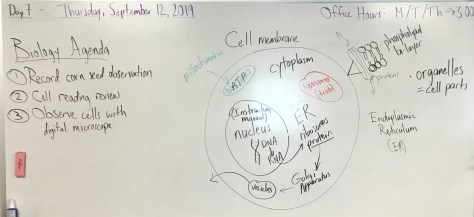 Day 7 - Thursday, September 12, 2019
Office Hours: M/T/Th → 3:00
Biology Agenda
① Record corn seed observation
② Cell reading review
③ Observe cells with
digital microscope
Cell membrane
mitochondria
ATP
cytoplasm
lysosome
phospholipid
bi-layer
protein
• organelles
= cell parts
(Instruction
manual)
nucleus
DNA
RNA
ER
ribosomes
protein
Golgi
Apparatus
vesicles
Endoplasmic
Reticulum
(ER)